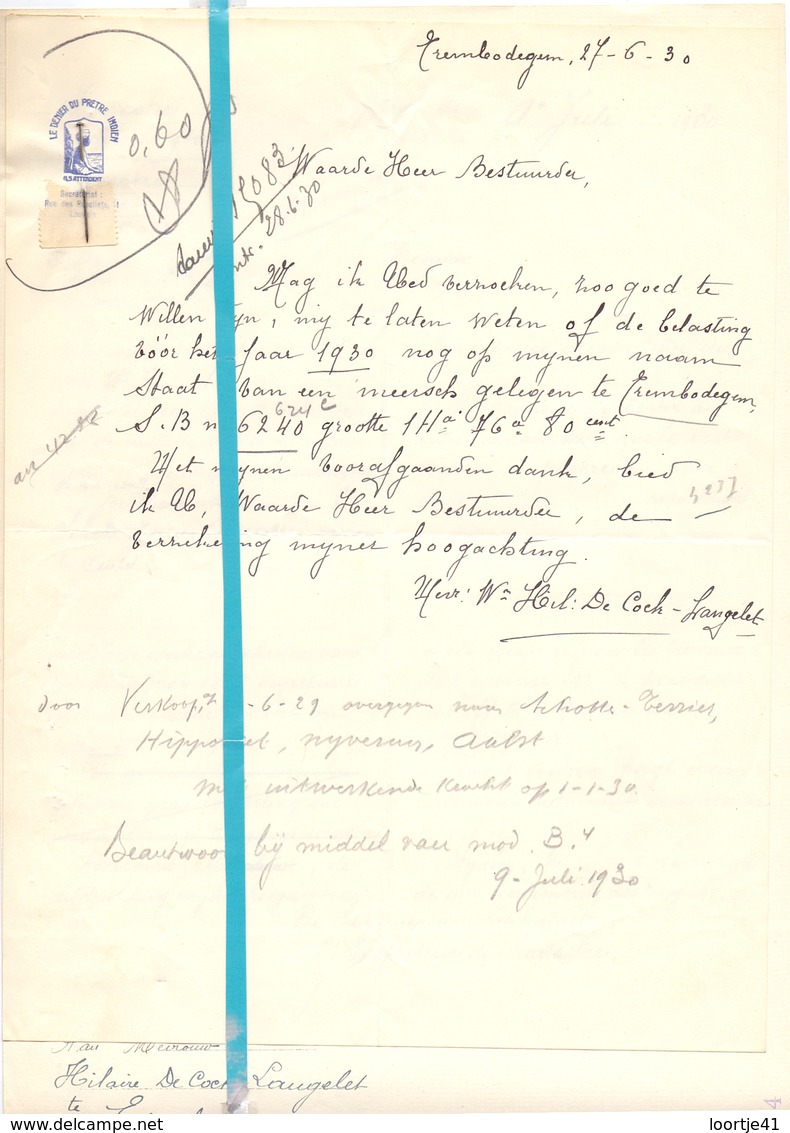 Erembodegem, 27-6-30
LE DENIER DU PRETRE INDIEN
ILS ATTENDENT
Secrétariat :
Rue des Récollets,
0,60
28-6-30
Waarde Heer Bestuurder,
Mag ik Ued verzoeken, zoo goed te
Willen zyn, my te laten weten of de belasting
vóór het Jaar 1930 nog op mynen naam
Staat van een meersch gelegen te Erembodegem,
624c
S.B n 6240 grootte 1 Ha 76a 80 cent.
Met mynen voorafgaanden dank, bied
ik U, Waarde Heer Bestuurder, de
verzekering myner hoogachting.
Mevr: We Hil: De Cock-Langelet
door Verkoop, -6-29 overgegaan naar Schotte-
Aalst
met uitwerkende kracht op 1-1-30.
Beantwoord bij middel van mod. B.4
9-Juli 1930
Aan Mevrouw
Hilaire De Cock Langelet
te
4
loortje41